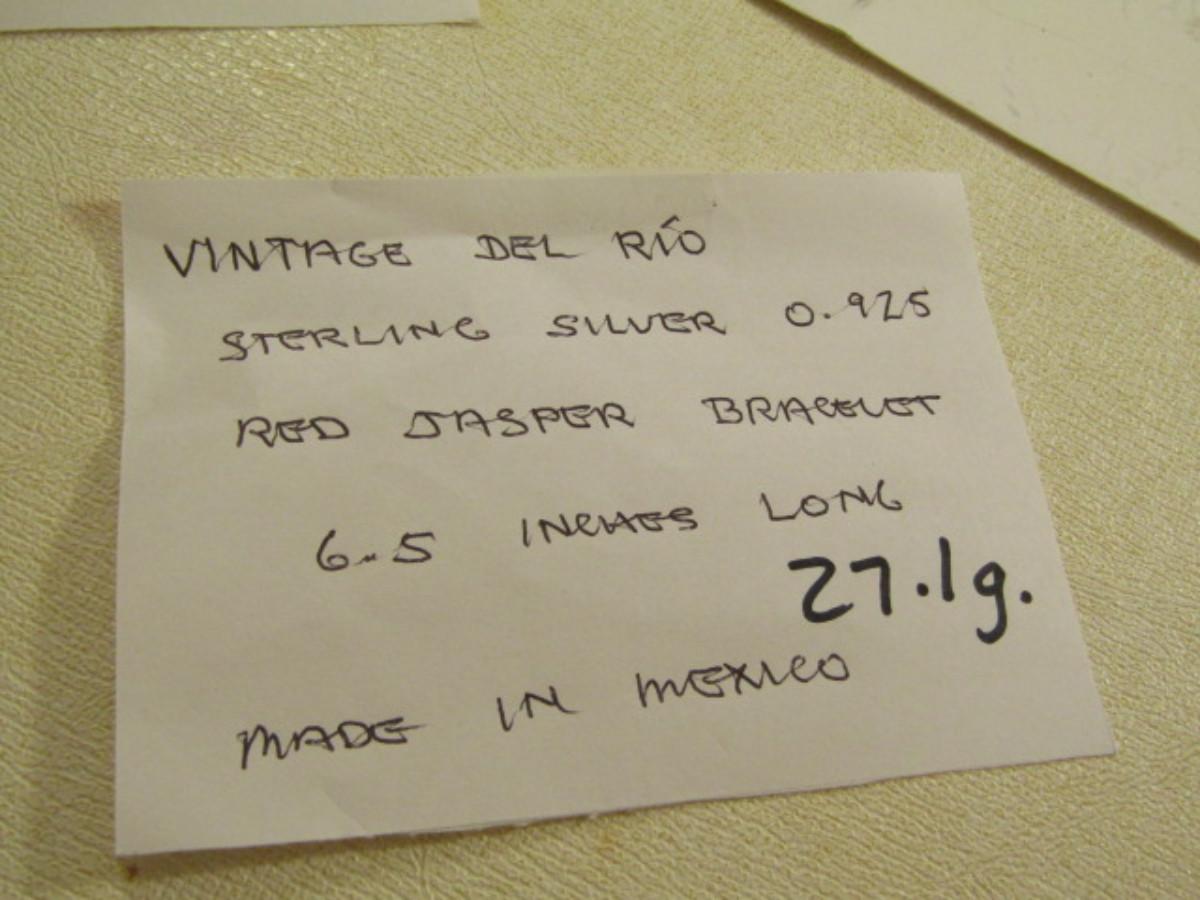 VINTAGE DEL RÍO
STERLING SILVER 0.925
RED JASPER BRACELET
6.5 INCHES LONG
27.1g.
MADE IN MEXICO